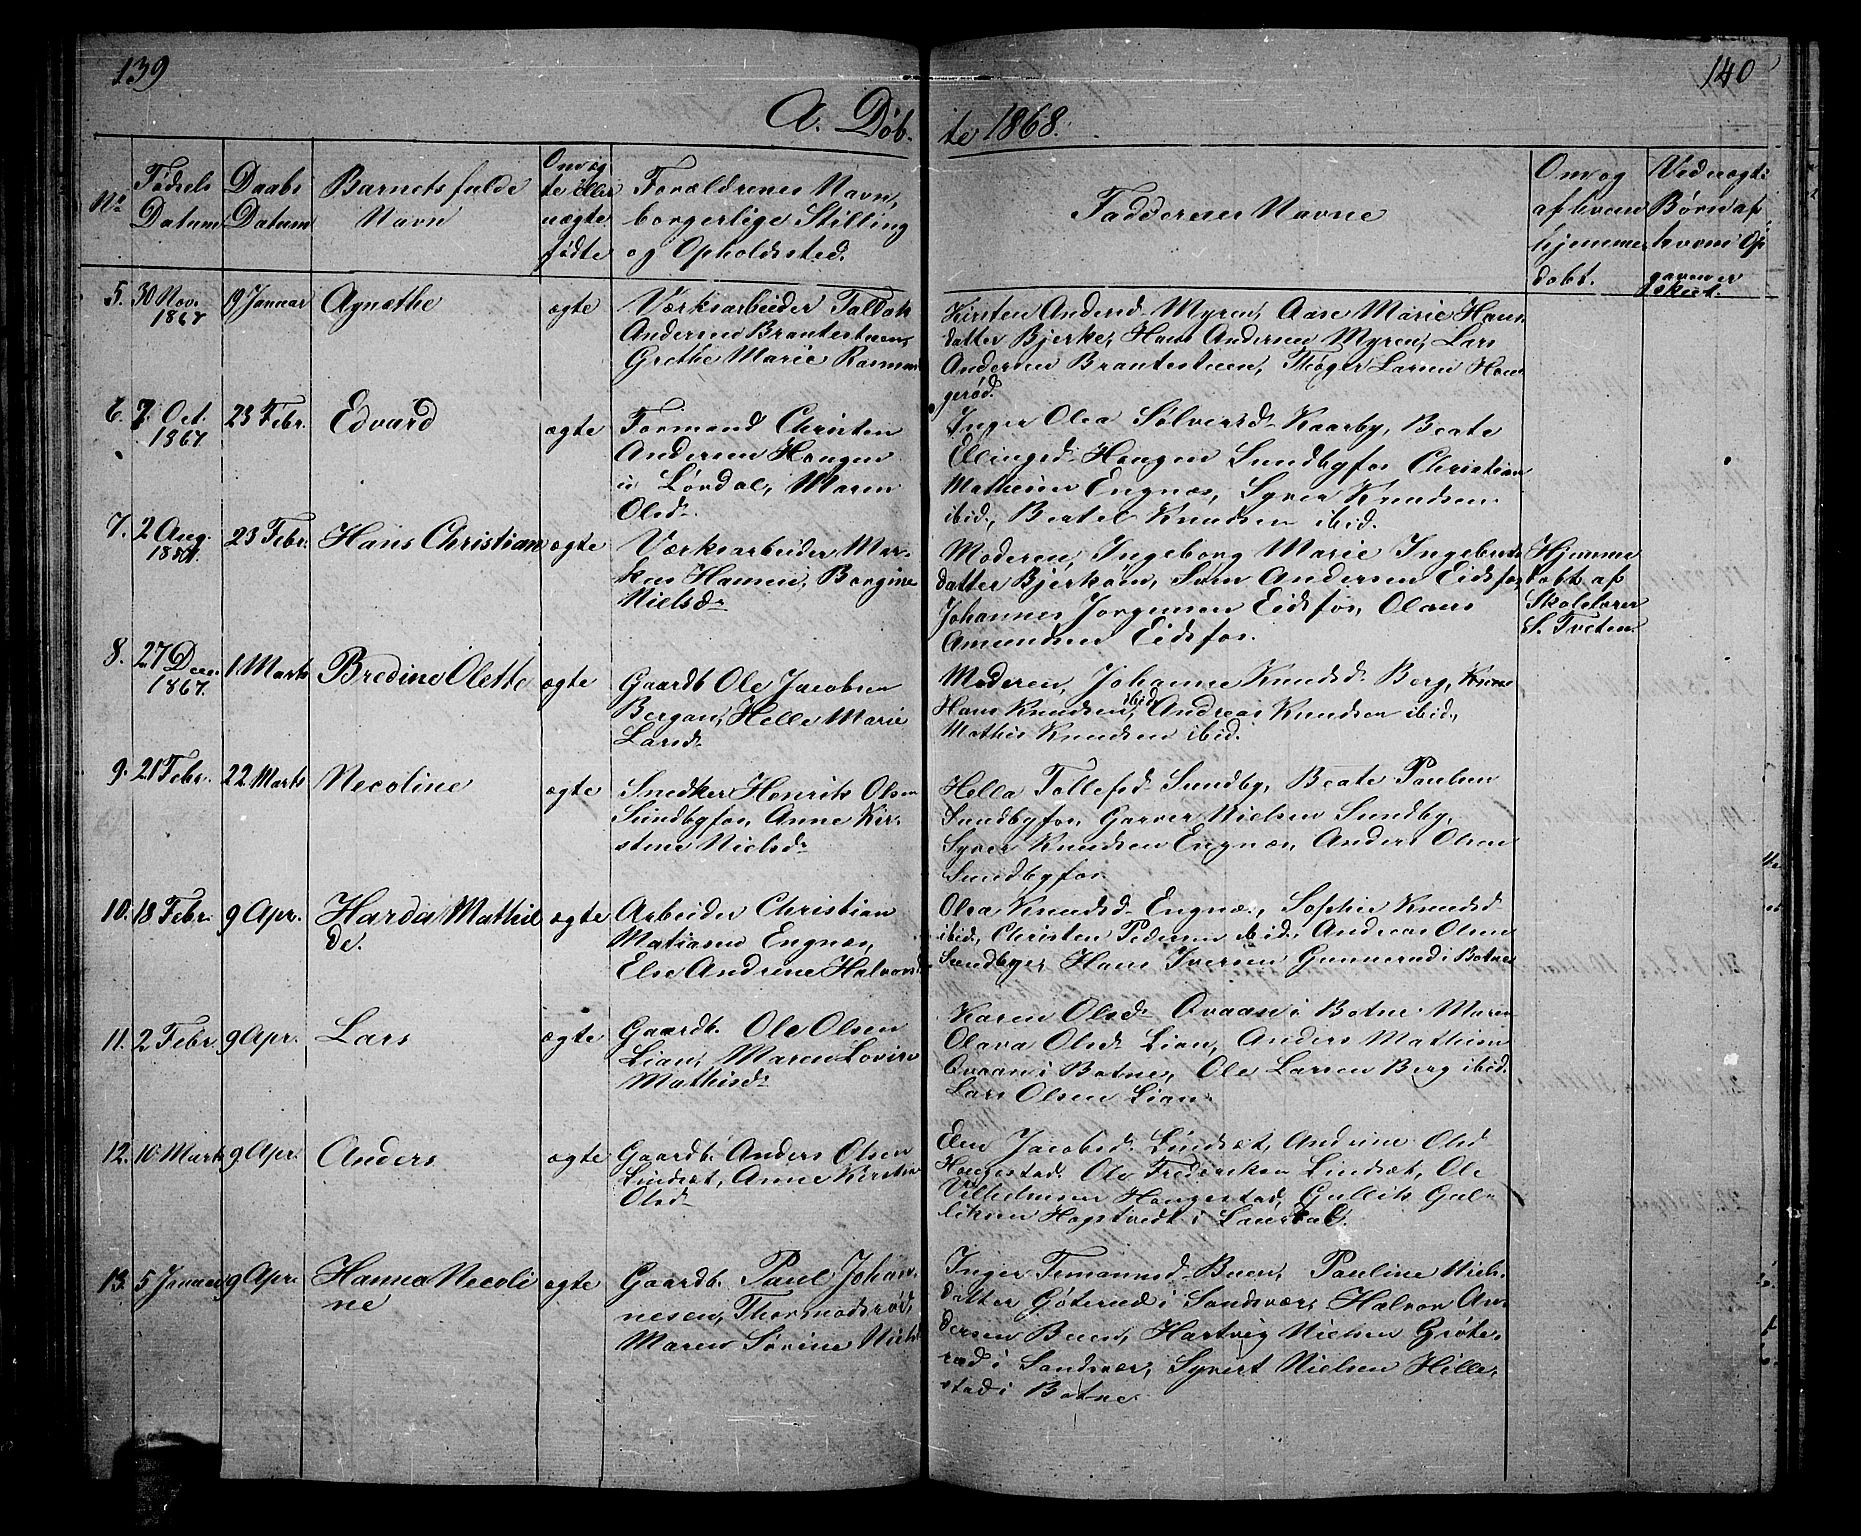 139
140
A. Døb-
te 1868.
No
Fødsels Datum
Daabs Datum
Barnets fulde Navn
Om ægte eller uægte fødte
Forældrenes Navn, borgerlige Stilling og Opholdssted.
Faddernes Navne
Om og af hvem hjemmedøbt.
Ved uægte Børn af hvem Opgaven er skeet.
5. 30 Nov. 1867 19 Januar Agnethe ægte
Værksarbeider Taldak
Andersen Brantesteen,
Grethe Marie Rasmus
Kirsten Andersd. Myren, Aase Marie Hans
datter Bjerke, Hans Andersen Myren, Lars
Andersen Brantesteen, Thøger Larsen Hon
gerød.
6. 7 Oct. 1867 23 Febr. Edvard ægte
Formand Christen
Andersen Haugen
i Løvdal, Maren
Olsd.
Inger Olea Sølversd. Kaarby, Beate
Ellingsd. Haugen Sundbyfos Christian
Mathisen Engnæs, Syver Knudsen
ibid, Bertel Knudsen ibid.
7. 2 Aug. 23 Febr. Hans Christian ægte
Værksarbeider Mar-
kus Hansen, Borgine
Nielsd.
Moderen, Ingeborg Marie Ingebrets
datter Bjerkøen, Sven Andersen Eidsfos,
Johannes Jørgensen Eidsfos, Olaus
Amundsen Eidsfos.
Hjemme
døbt af
Skolelærer
S. Tveten.
8. 27 Dec. 1867. 1 Marts Bredine Olette ægte
Gaardb Ole Jacobsen
Bergan, Helle Marie
Larsd.
Moderen, Johanne Knudsd. Berg,
Hans Knudsen ibid, Andreas Knudsen ibid,
Mathis Knudsen ibid.
9. 21 Febr. 22 Marts Necoline ægte
Snedker Henrik Olsen
Sundbyfos, Anne Kir-
stine Nielsd.
Hella Tollefsd. Sundby, Beate Paulsen
Sundbyfos, Garver Nielsen Sundby,
Syver Knudsen Engnæs, Anders Olsen
Sundbyfos.
10. 18 Febr. 9 Apr. Harda Mathil
de. ægte
Arbeider Christian
Matiasen Engnæs,
Else Andrine Halvorsd
Olea Knudsd. Engnæs, Sophie Knudsd
ibid, Christen Pedersen ibid, Andreas Olsen
Sundbyfos, Hans Iversen Gunnerud i Botne
11. 2 Febr 9 Apr. Lars ægte
Gaardb. Ole Olsen
Lian, Maren Lovise
Mathisd.
Karen Olsd. Avaan i Botne. Maren
Olava Olsd. Lian, Anders Mathisen
Avaan i Botne, Ole Larsen Berg ibid.
Lars Olsen Lian.
12. 10 Marts 9 Apr. Anders ægte
Gaardb. Anders Olsen
Lindsæt, Anne Kirstine
Olsd.
Elen Jacobsd. Lindsæt, Andrine Olsd
Haugestad. Ole Fredriksen Lindsæt, Ole
Vilhelmsen Haugestad, Gullik Gul-
liksen Hagtvedt i Laurdal.
13. 5 Januar 9 Apr. Hanna Necoli
ne ægte
Gaardb. Paul Johan-
nesen, Thormodsrød,
Maren Sørine Niels
Inger Tomannsd. Buen, Pauline Niels
datter Gøterud i Sandsvær, Halvor An
dersen Buen, Hartvig Nielsen Grøte-
rød i Sandsvær, Syvert Nielsen Hille-
stad i Botne.